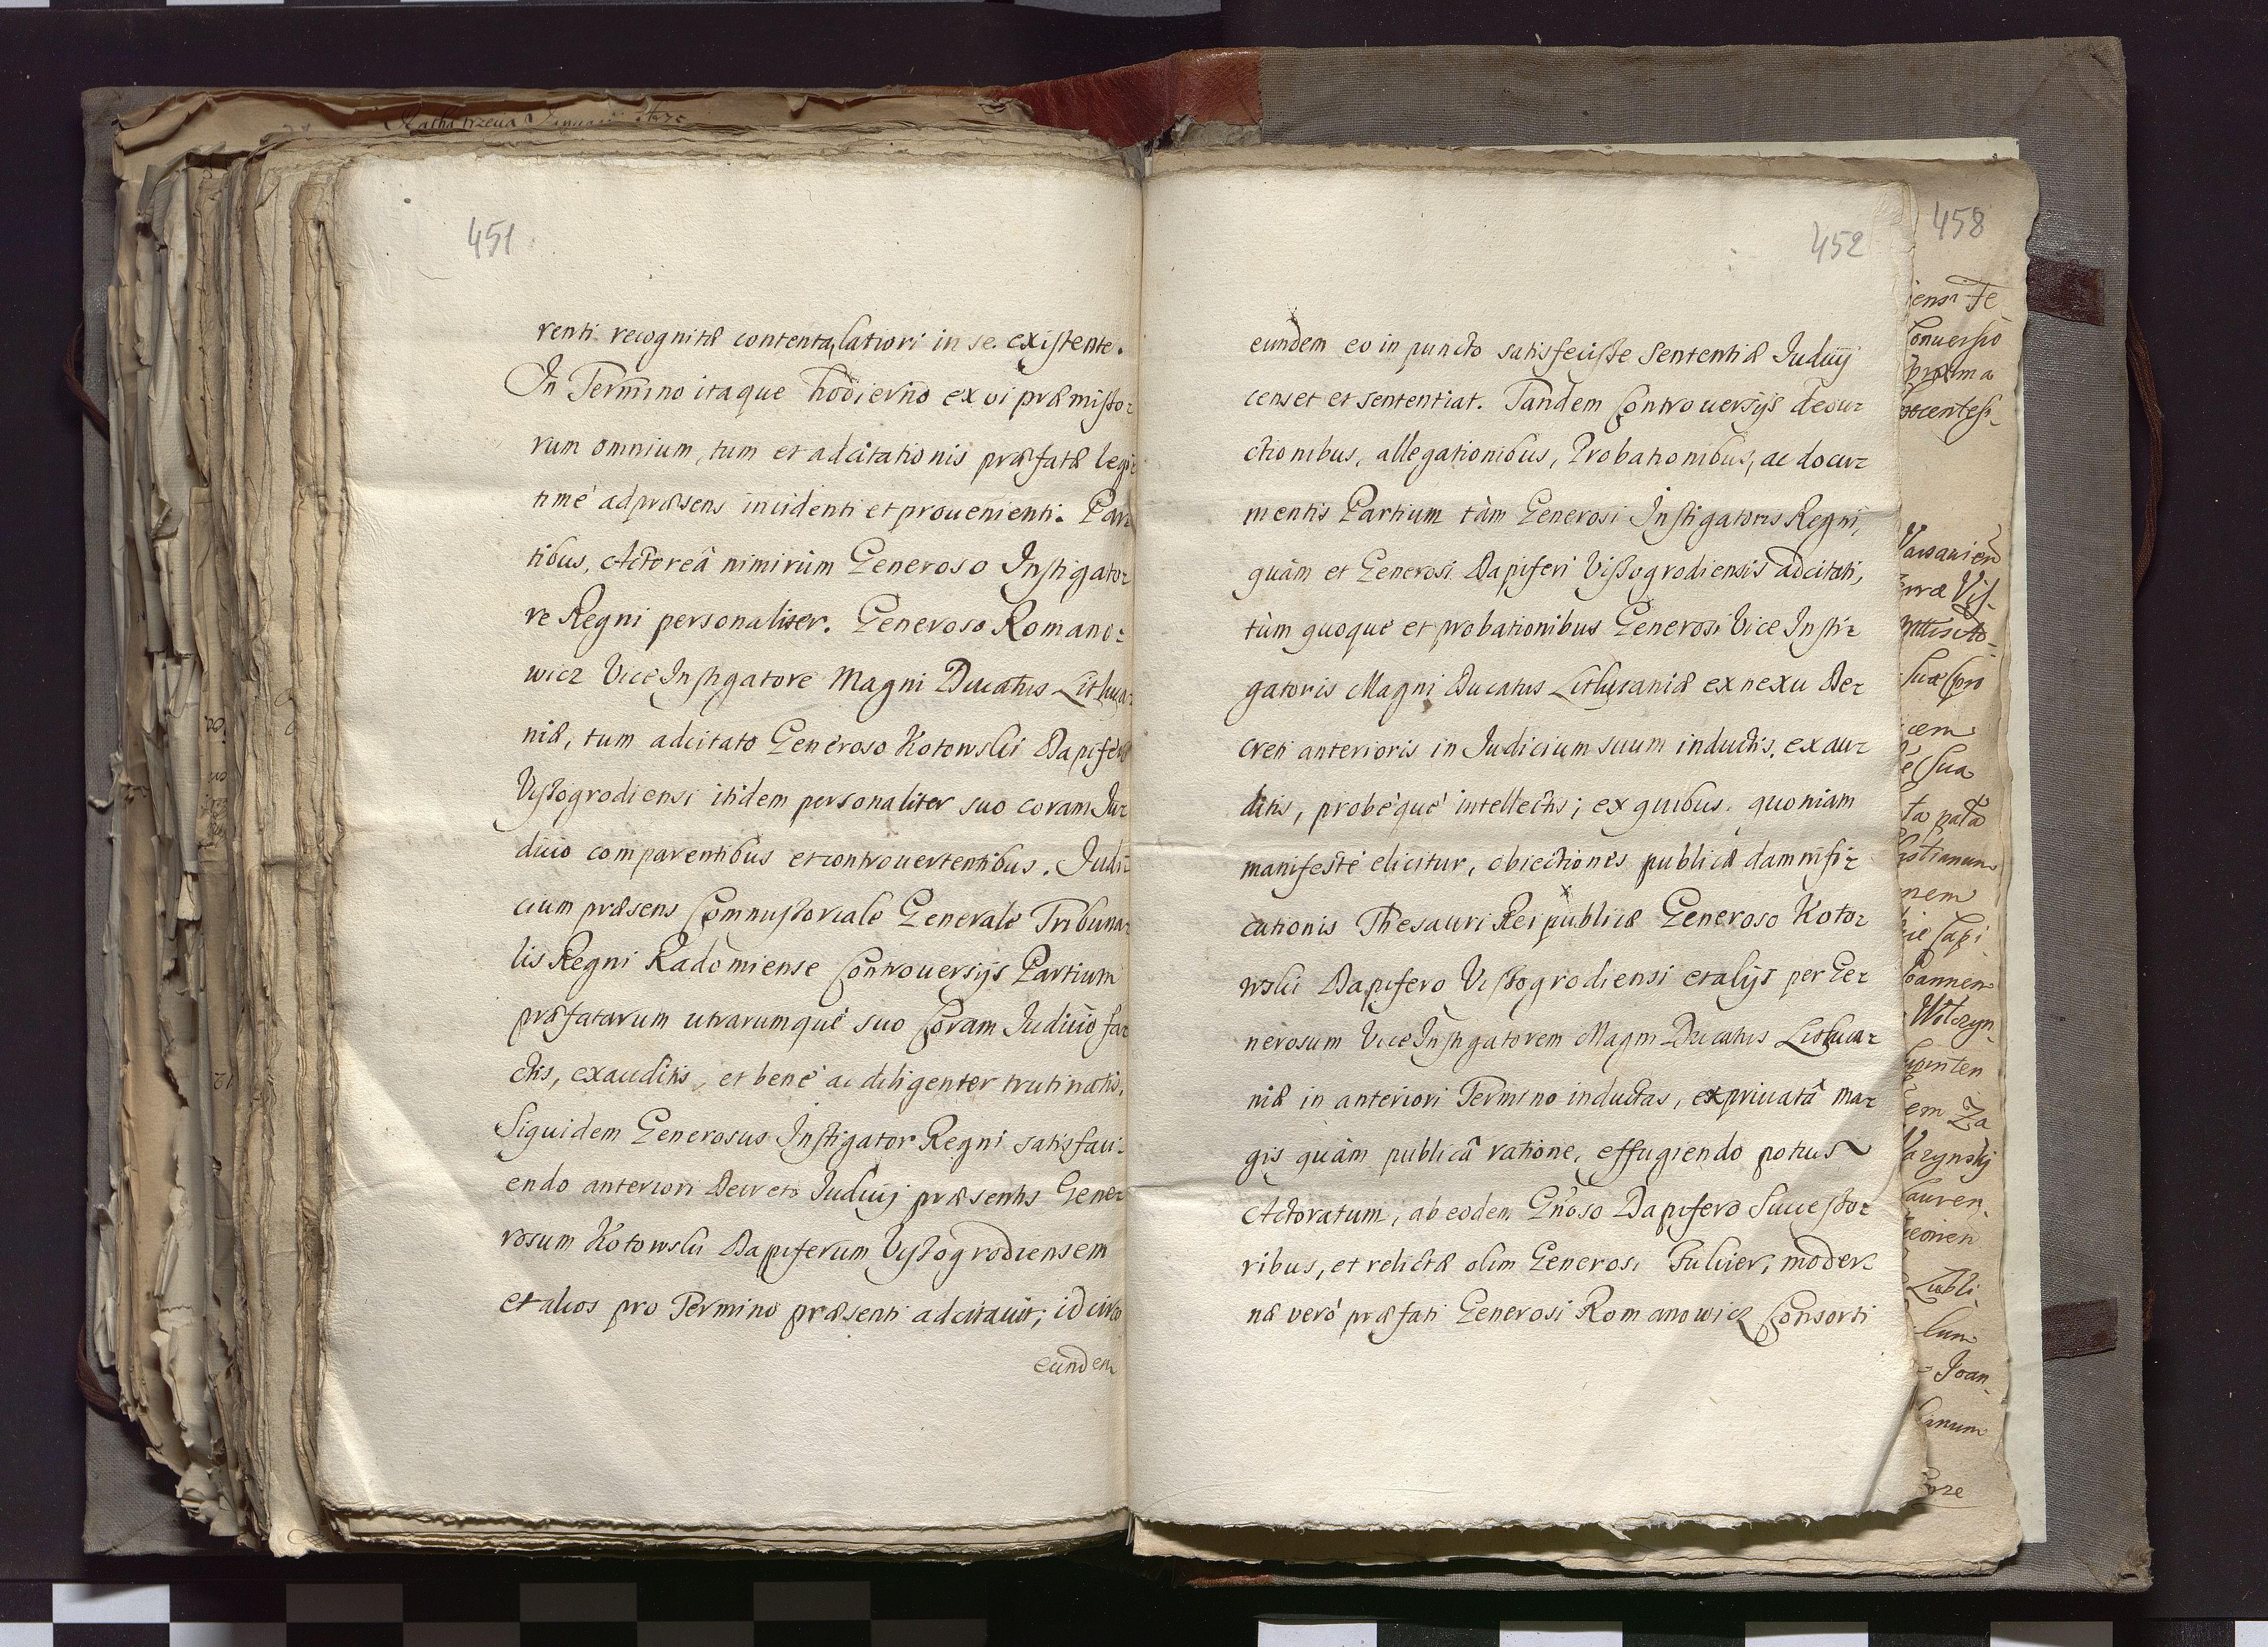 451
renti recognitæ contenta, latiori in se existente.
In Termino itaque hodierno ex vi præmisso-
rum omnium, tum et adcitationis præfatæ legi-
timé ad præsens incidenti et prouenienti. Par-
tibus, Actoreâ nimirùm Generoso Instigato-
re Regni personaliter. Generoso Romano-
wicz Vice Instigatore Magni Ducatus Lithua-
niæ, tum adcitato Generoso Kotowski Dapifero
Vyssogrodiensi itidem personaliter suo coram Ju-
dicio comparentibus et controuertentibus. Judi-
cium præsens Commissoriale Generale Tribuna-
lis Regni Radomiense Controuersijs Partium
præfatarum utrarumqué suo Coram Judicio fa-
ctis, exauditis, et bené ac diligenter trutinatis.
Siquidem Generosus Instigator Regni satisfaci-
endo anteriori Decreto Judicij præsentis Gene-
rosum Kotowski Dapiferum Vyssogrodiensem
et alios pro Termino præsenti adcitauit; idcirco
eundem
452
eundem eo in puncto satisfecisse Sententiæ Judicij
censet et sententiat. Tandem Controuersijs dedu-
ctionibus, allegationibus, Probationibus, ac docu-
mentis Partium tàm Generosi Instigatoris Regni,
quàm et Generosi Dapiferi Vissogrodiensis adcitati,
tùm quoqué et probationibus Generosi Vice Insti-
gatoris Magni Ducatus Lithuaniæ ex nexu De-
creti anterioris in Judicium suum inductis, exau-
ditis, probéqué intellectis; ex quibus quoniam
manifesté elicitur, obiectiones publicæ damnifi-
cationis Thesauri Reipublicæ Generoso Koto-
wski Dapifero Vissogrodiensi et alijs per Ge-
nerosum Vice Instigatorem Magni Ducatus Lithua-
niæ in anteriori Termino inductas, ex priuatâ ma-
gis quàm publicâ ratione, effugiendo potius
Actoratum, ab eodem Gnoso Dapifero Successo-
ribus, et relictæ olim Generosi moder-
næ veró præfati Generosi Romanowicz Consorti
458